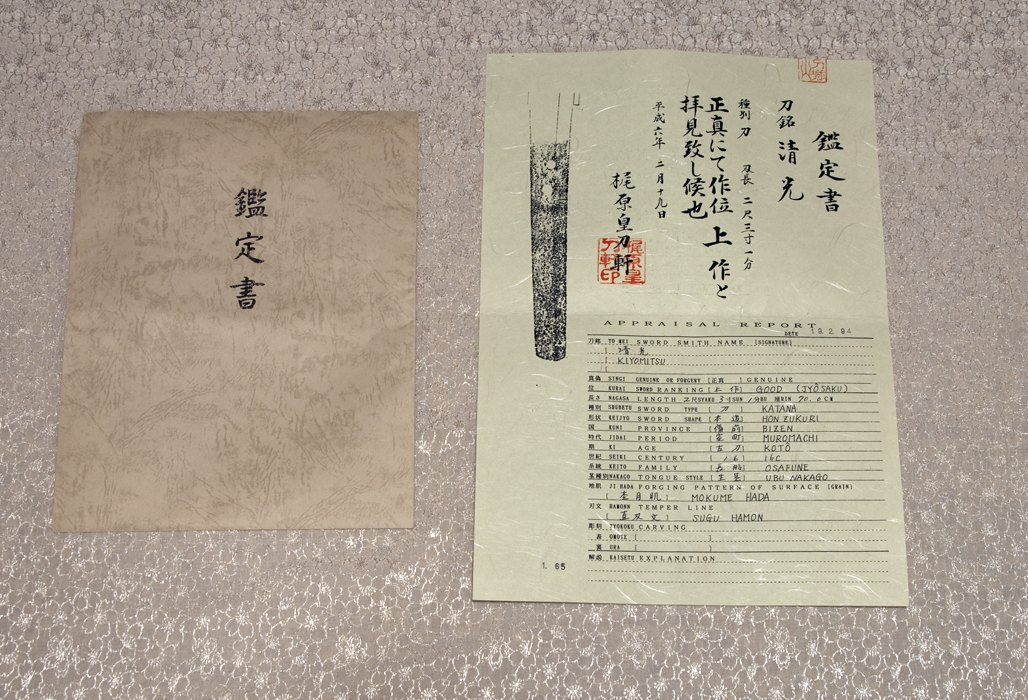 鑑定書
鑑定書
刀銘 清光
種別 刀 刃長 二尺三寸一分
正真にて作位 上作と
拝見致し候也
平成六年 二月十九日
梶原皇刀軒
梶原皇刀軒印
APPRAISAL REPORT
DATE 19.2.94
刀銘 TO MEI SWORD SMITH NAME [SIGNATURE]
[ 清光
[ KIYOMITSU
真偽 SINGI GENUINE OR FORGERY [正真 ] GENUINE
位 KURAI SWORD RANKING [上作] GOOD (JYŌSAKU)
長さ NAGASA LENGTH 2尺SYAKU 3寸SUN 1分BU 70.0CM
種別 SHUBETU SWORD TYPE [ 刀 ] KATANA
形状 KEIJYO SWORD SHAPE [本造] HON ZUKURI
国 KUNI PROVINCE [備前] BIZEN
時代 JIDAI PERIOD [室町] MUROMACHI
期 KI AGE [古刀] KOTŌ
世紀 SEIKI CENTURY [ 16 ] 16C
系統 KEITO FAMILY [長船] OSAFUNE
茎種別 NAKAGO TONGUE STYLE [生茎] UBU NAKAGO
地肌 JI HADA FORGING PATTERN OF SURFACE [GRAIN]
[ 杢目肌 ] MOKUME HADA
刃文 HAMONN TEMPER LINE
[ 直刃文 ] SUGU HAMON
彫刻 TYOKOKU CARVING
表 OMOTE [ ]
裏 URA [ ]
解説 KAISETU EXPLANATION
1. 65